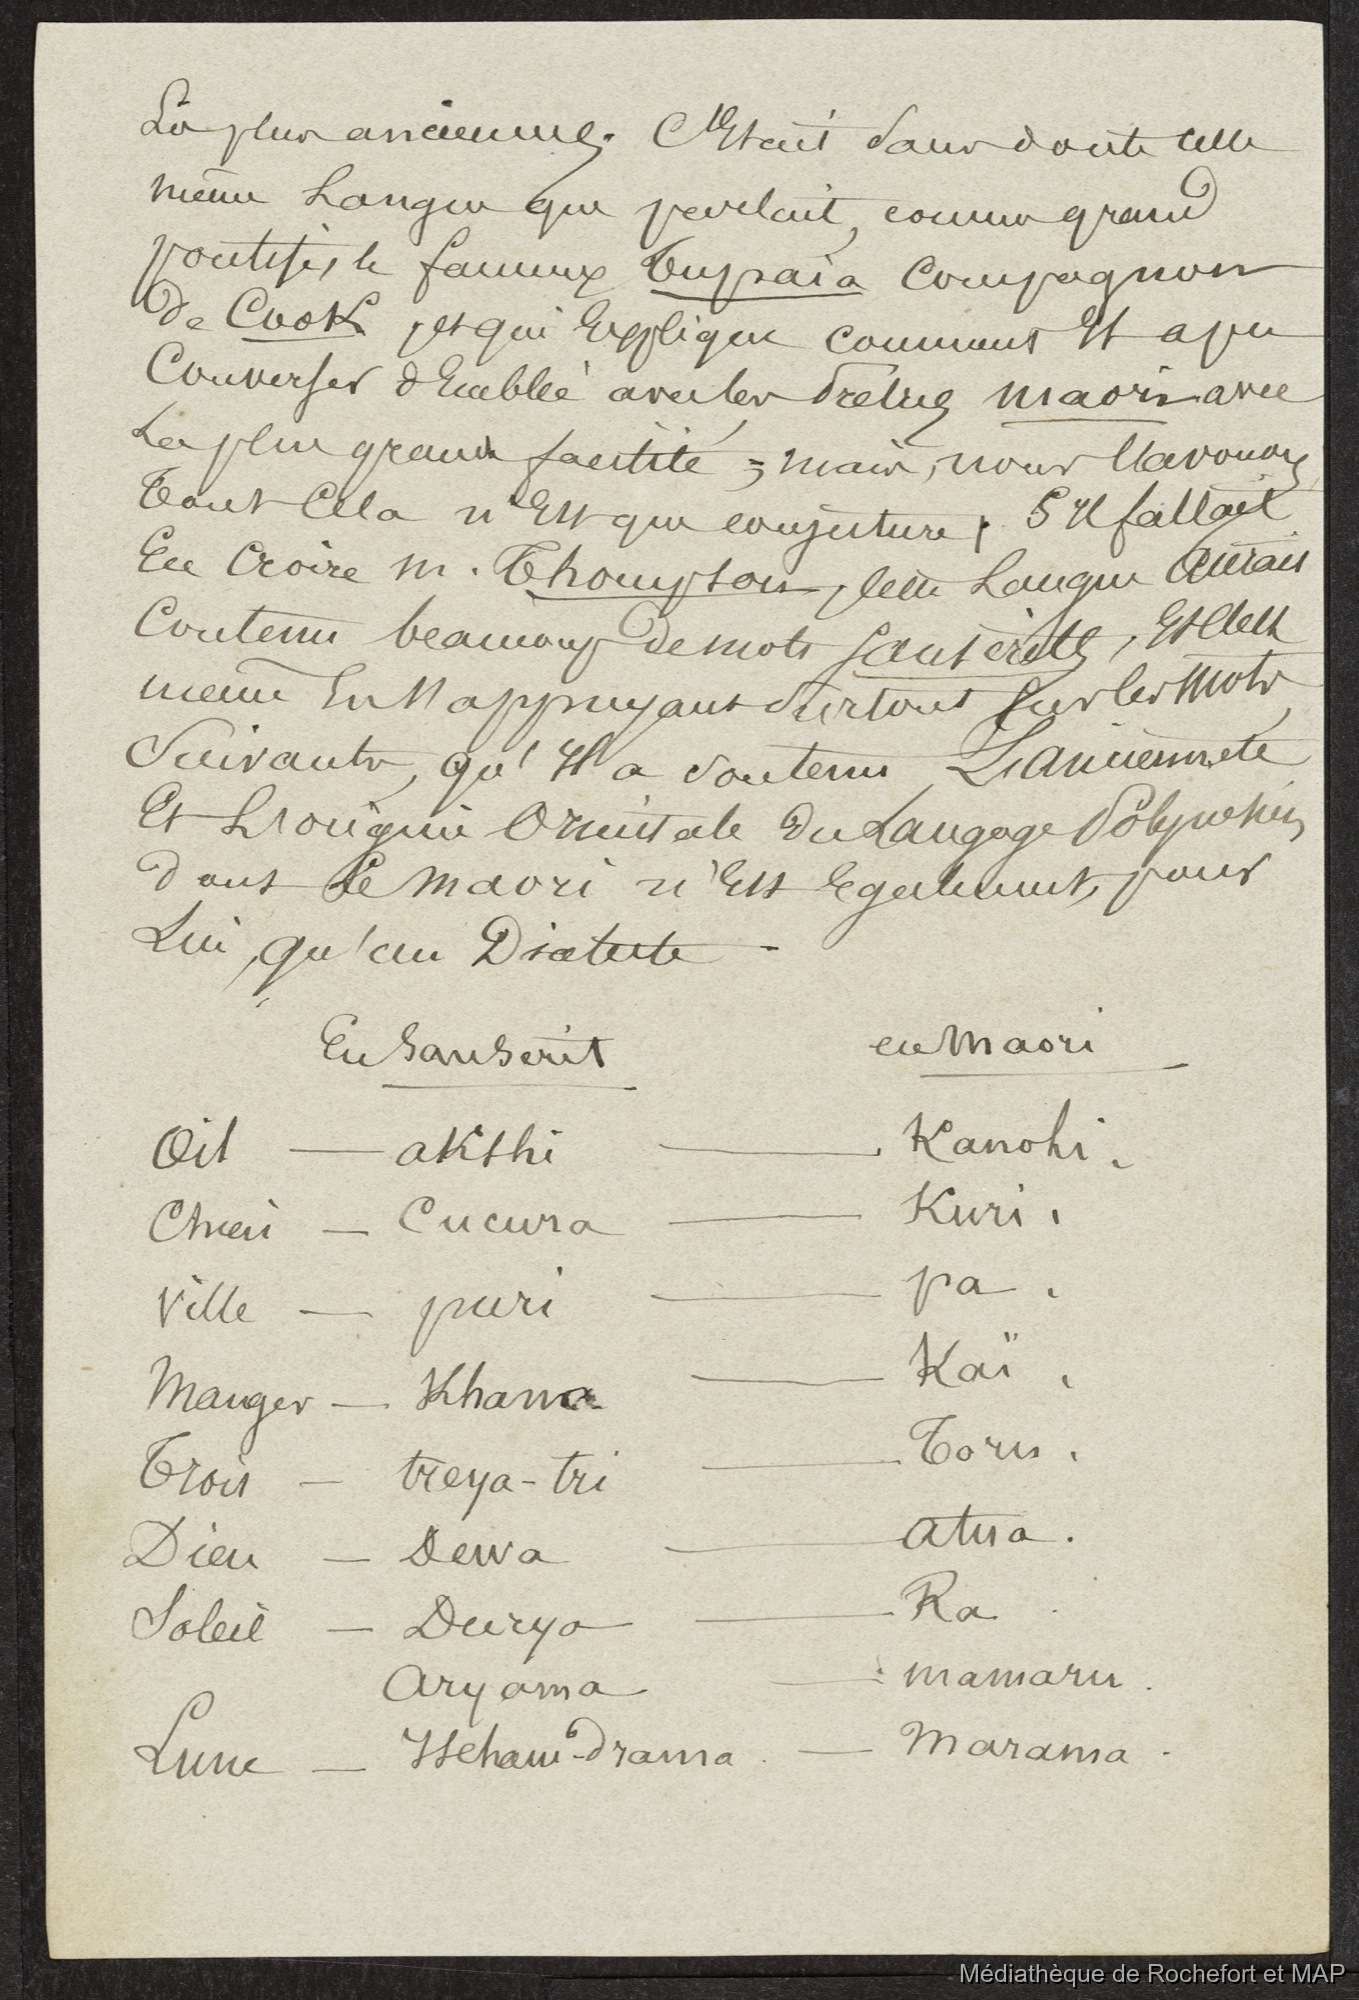 La plus ancienne. C'Etait sans doute cette
même Langue que parlait, comme grand
pontife, le fameux Tupaia compagnon
de Cook, et qui Explique comment Il a pu
Converser d'Emblée avec les Prêtres maoris avec
La plus grande facilité ; mais, nous l'avouons
Tout Cela n'Est que conjecture. S'Il fallait
En Croire M. Thompson, cette Langue Aurait
Contenu beaucoup de mots Sanscrits, Et C'est
même En s'appuyant surtout Sur les Mots
Suivants, qu'Il a soutenu L'ancienneté
Et L'origine Orientale du Langage Polynésien
dont Le Maori n'Est Egalement, pour
Lui, qu'un Dialecte -
En Sanscrit en Maori
Œil — akshi — Kanohi.
Chien — Cucura — Kuri.
Ville — puri — pa.
Manger — Khana — Kaï.
Trois — treya-tri — Toru.
Dieu — Dewa — atua.
Soleil — Surya — Ra
Aryama — mamaru.
Lune — Tschan-drama — Marama.
Médiathèque de Rochefort et MAP